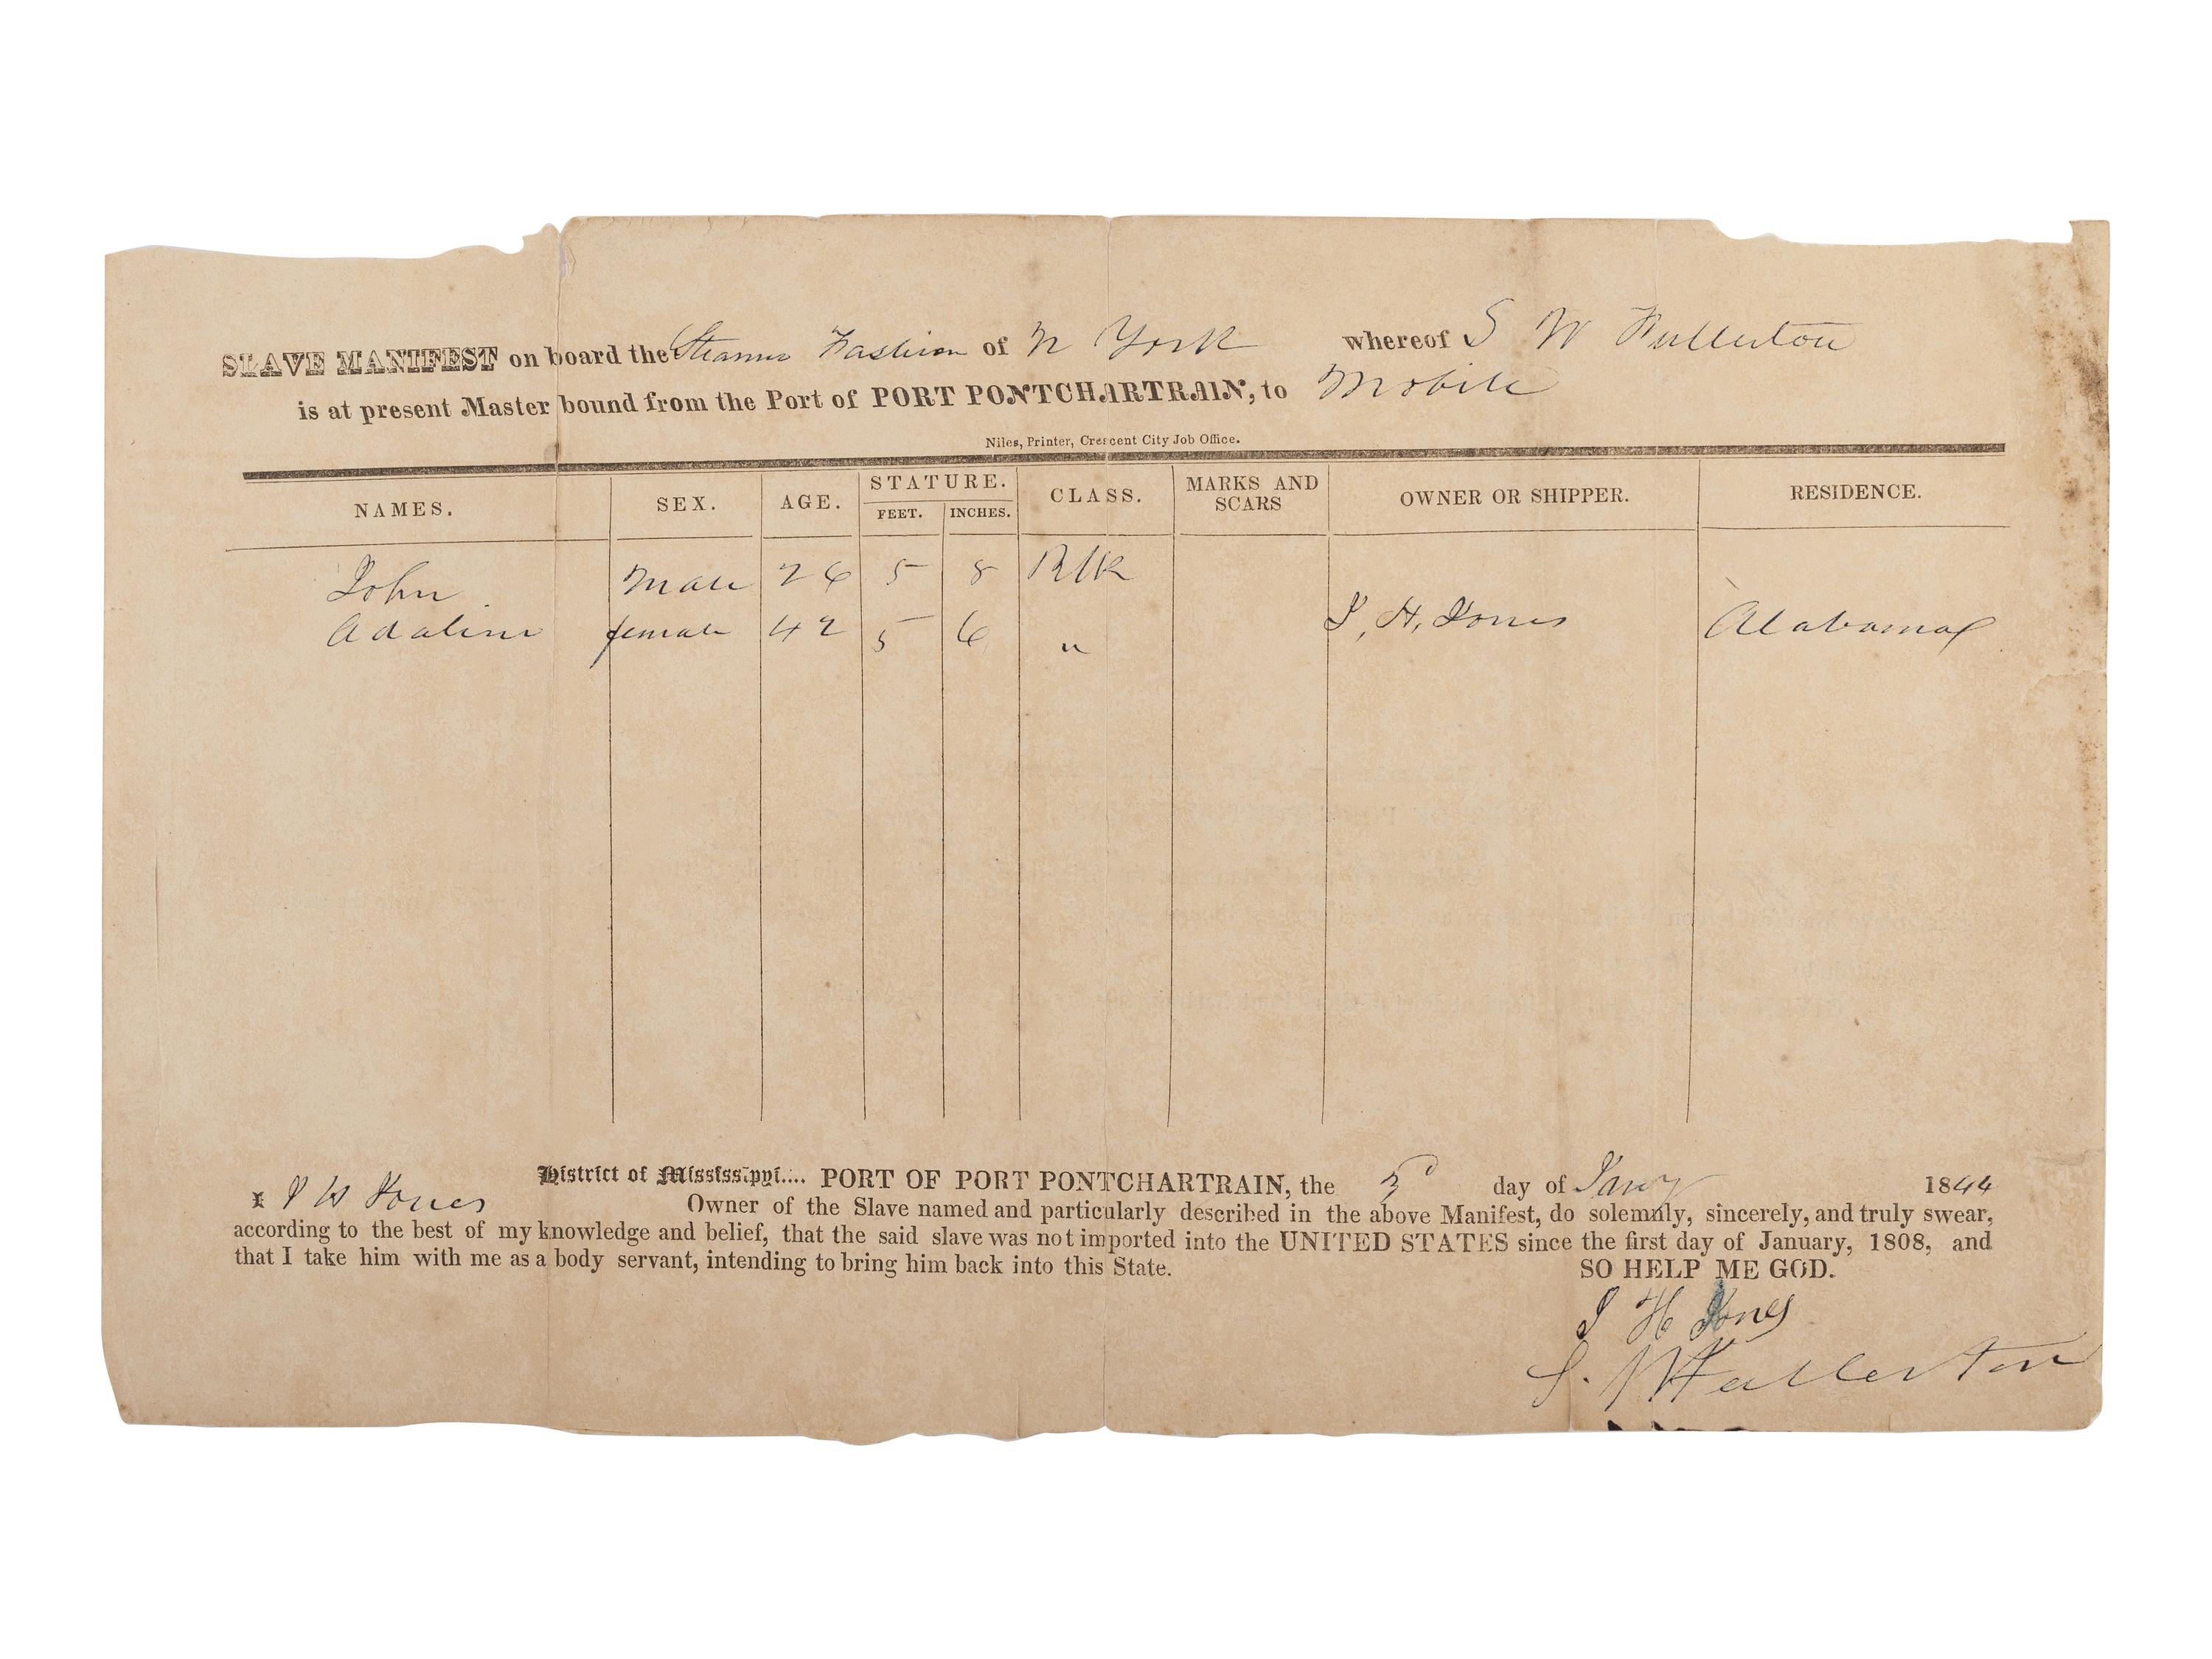 SLAVE MANIFEST on board the Steamer Fashion of N York whereof S W Fullerton
is at present Master bound from the Port of PORT PONTCHARTRAIN, to Mobile
Niles, Printer, Crescent City Job Office.
NAMES. SEX. AGE. STATURE. FEET. INCHES. CLASS. MARKS AND SCARS OWNER OR SHIPPER. RESIDENCE.
John Male 26 5 8 Blk
Adaline female 42 5 6 " J, H, Jones Alabama
District of Mississippi.... PORT OF PORT PONTCHARTRAIN, the 3d day of Jany 1844
I J H Jones Owner of the Slave named and particularly described in the above Manifest, do solemnly, sincerely, and truly swear,
according to the best of my knowledge and belief, that the said slave was not imported into the UNITED STATES since the first day of January, 1808, and
that I take him with me as a body servant, intending to bring him back into this State. SO HELP ME GOD.
J H Jones
S. W Fullerton